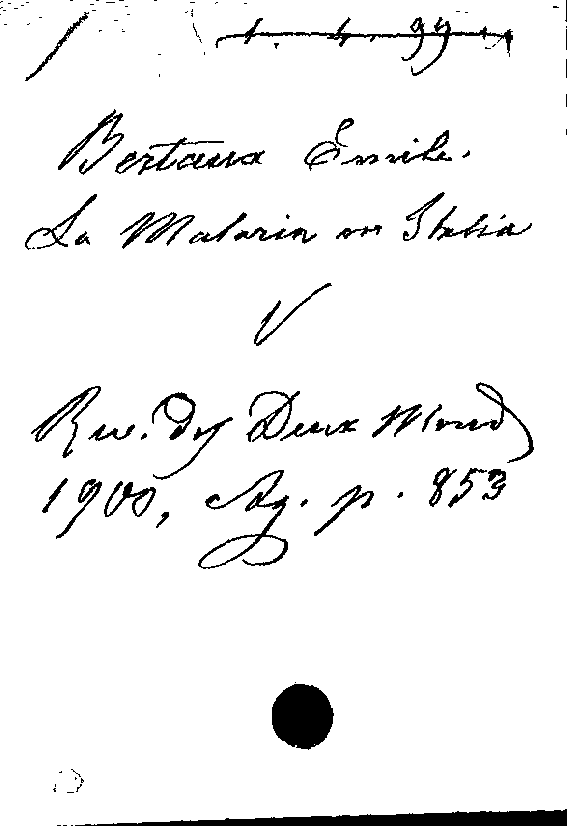 1. 4. 99
Bertaux Emile.
La Malaria in Italia
V
Rev. des Deux Mond
1900, Ag. p. 853